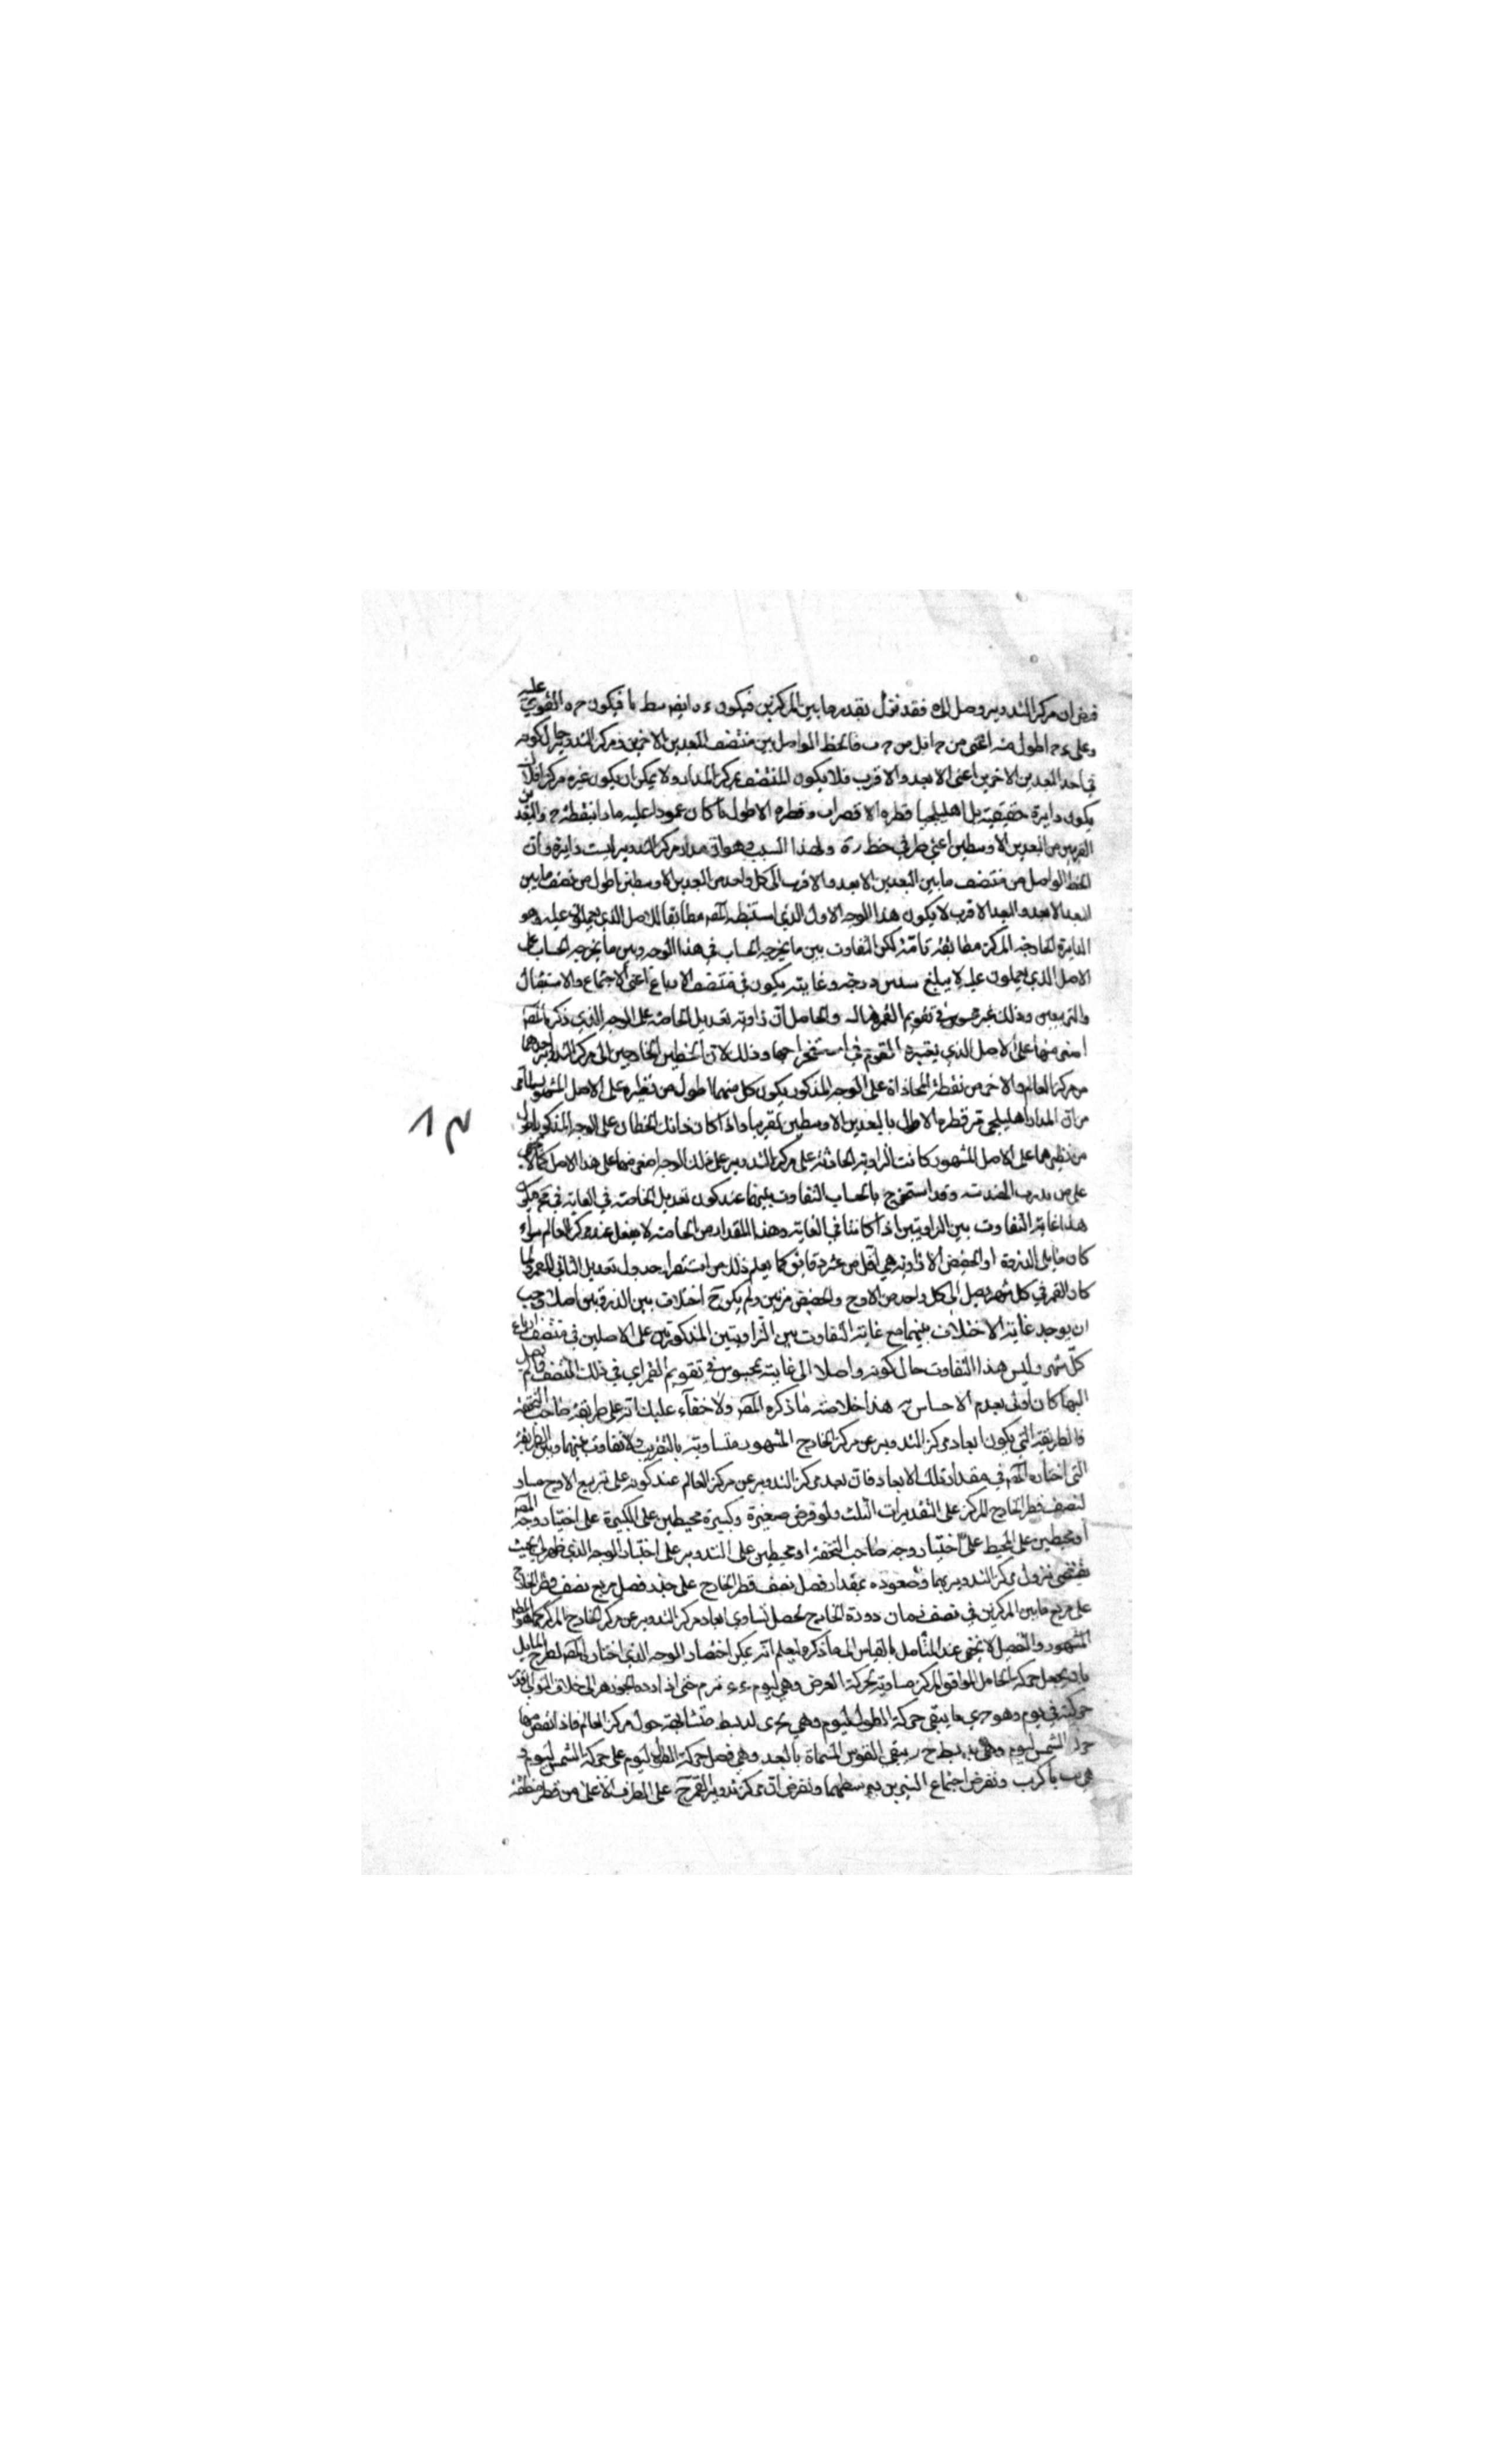 فرض ان مركز التدوير وصل اليه فقد نزل بقدر ما بين المركزين فيكون ء ه ايضا سط ما فيكون ح ه القوى عليه
وعلى ء ح اطول منه اعنى من ح ا بل من ح ب فالخط الواصل بين منتصف البعدين الاخرين ومركز التدوير حال كونه
في احد البعدين الاخرين اعنى الابعد والاقرب فلا يكون المنتصف مركز المدار ولا يمكن ان يكون غيره مركزا فلا
يكون دايرة حقيقية بل اهليلجيا قطره الاقصر اب وقطره الاطول ما كان عمودا عليه مادا بنقطة ح والبعد
القريبين من البعدين الاوسطين اعنى طرفي خط رة ولهذا السبب وهو ان مدار مركز التدوير ليست دايرة وان
الخط الواصل من منتصف ما بين البعدين الابعد والاقرب الى كل واحد من البعدين الاوسطين اطول من نصف ما بين
البعد الابعد والبعد الاقرب لا يكون هذا الوجه الاول الذي استنبطه المص مطابقا للاصل الذي يعملون عليه وهو
الدايرة الخارجة المركز مطابقة تامة لكن التفاوت بين ما يخرجه الحساب في هذا الوجه وبين ما يخرجه الحساب على
الاصل الذي يعملون عليه لا يبلغ سدس درجة وغايته يكون في منتصف الارباع اعنى الاجتماع والاستقبال
والتربيعين وذلك غير محسوس في تقويم القمر هناك والحاصل ان زاوية تعديل الخاصة على الوجه الذي ذكره المص
اصغر منها على الاصل الذي يعتبره القوم في استخراجها وذلك لان الخطين الخارجين الى مركز التدوير احدهما
من مركز العالم والاخر من نقطة المحاذاة على الوجه المذكور يكون كل منهما اطول من نظيره على الاصل المشهور لما مر
من ان المدار اهليلجى مر قطره الاطول بالبعدين الاوسطين تقريبا واذا كان ذانك الخطان على الوجه المذكور اطول
من نظيرهما على الاصل المشهور كانت الزاوية الحادثة على مركز التدوير على ذلك الوجه اصغر منها على هذا الاصل كما لا يخفى
على من تدرب الهندسة وقد استخرج بالحساب التفاوت بينهما عند كون تعديل الخاصة في الغاية
هذا غاية التفاوت بين الزاويتين اذا كانتا في الغاية وهذا المقدار من الخاصة لا يفعل عند مركز العالم سواء
كان مما يلى الذروة او الحضيض الا زاوية هي اقل من عشر دقايق كما يعلم ذلك من استقراء جدول تعديل الثاني للقمر ولما
كان القمر في كل شهر يصل الى كل واحد من الاوج والحضيض مرتين ولم يكن ح اختلاف بين الذروتين اصلا وجب
ان يوجد غاية الاختلاف بينهما مع غاية التفاوت بين الزاويتين المذكورتين على الاصلين في منتصف ارباع
كل شهر وليس هذا التفاوت حال كونه واصلا الى غايته بمحسوس في تقويم القمر اي في ذلك المنتصف فما لم يصل
اليها كان اولى بعدم الاحساس به هذا خلاصة ما ذكره المص ولا خفاء عليك انه على طريقة صاحب التحفة
والطريقة التي يكون ابعاد مركز التدوير عن مركز الخارج المشهور متساوية بالتقريب لا تفاوت بينهما وبين الطريقة
التي اختاره المص في مقدار تلك الابعاد فان بعد مركز التدوير عن مركز العالم عند كونه على تربيع الاوج مساو
لنصف قطر الخارج المركز على التقديرات الثلث ولو فرض صغيرة وكبيرة محيطين على الكبيرة على اختيار وجه المص
او محيطين على المحيط على اختيار وجه صاحب التحفة او محيطين على التدوير على اختيار الوجه الذي ظهر لي بحيث
يقتضى نزول مركز التدوير بهما وصعوده بمقدار فصل نصف قطر الخارج على جذر فصل مربع نصف قطر الخارج
على مربع ما بين المركزين في نصف زمان دورة الخارج يحصل تساوي ابعاد مركز التدوير عن مركز الخارج المركز كما هو
المشهور والتفصيل لا يخفى عند المتأمل بالقياس الى ما ذكره وليعلم انه يمكن اختصار الوجه الذي اختاره المص بطرح المايل
بان يجعل حركة الحامل الموافق المركز مساوية لحركة العرض وهي ليوم حتى اذا رده الجوزهر الى خلاف التوالي بقدر
حركته في يوم وهو ما يبقى حركة الطول ليوم وهي متشابهة حول مركز العالم فاذا نقص منها
حركة الشمس ليوم وهي يبقى القوس المسماة بالبعد وهي فصل حركة الطول ليوم على حركة الشمس ليوم
ونفرض اجتماع النيرين بوسطهما ونفرض ان مركز تدوير القمر ح على الطرف الاعلى من قطر منطقة